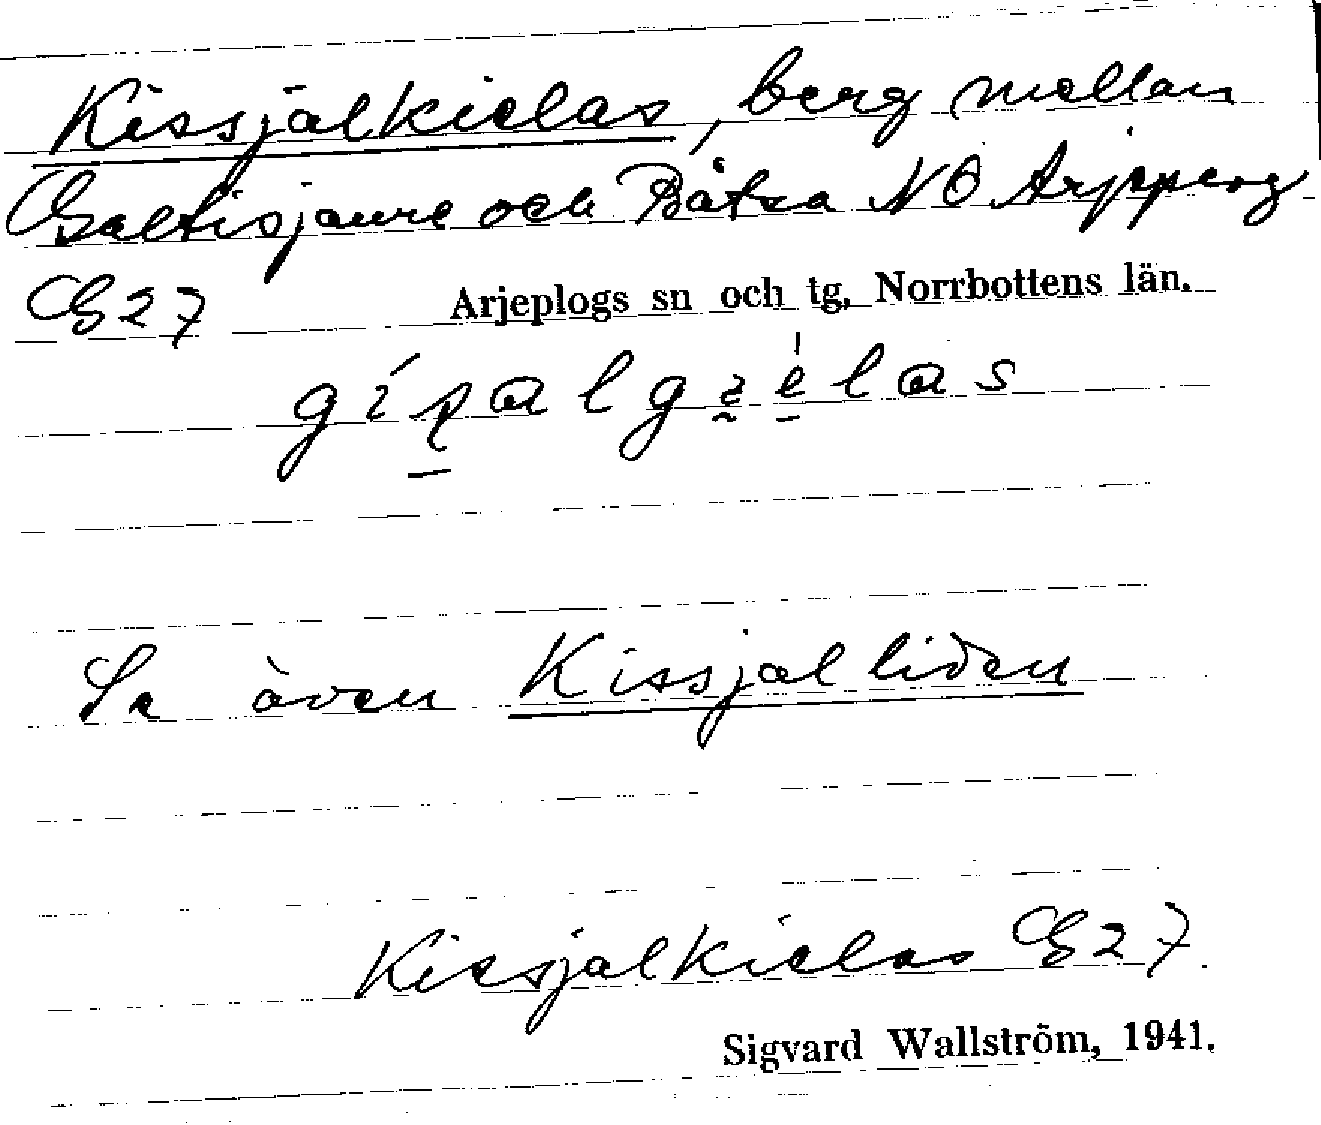 Kissjalkielas, berg mellan
Galtisjaure och Båtsa NO Arjepperg
G 27 Arjeplogs sn och tg, Norrbottens län.
Se även Kissjalliden
Kissjalkielas G 27
Sigvard Wallström, 1941.